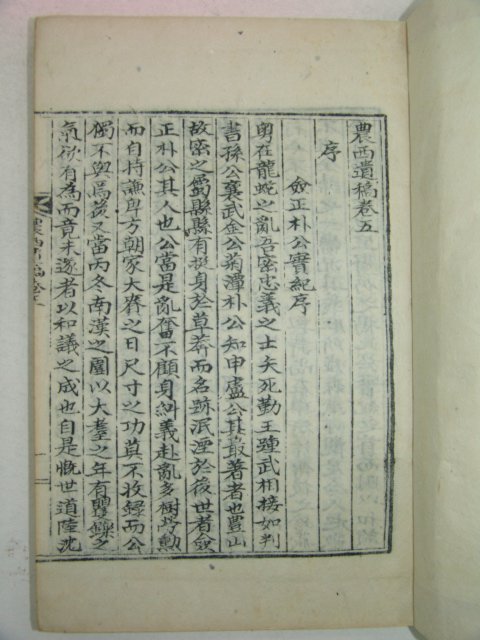 農西遺稿卷五
序
僉正朴公實紀序
粤在龍蛇之亂吾密忠義之士矢死勤王踵武相接如判
書孫公襄武金公菊潭朴公知申盧公其最著者也豊山
故密之屬縣縣有挺身於草莽而名跡泯湮於後世者僉
正朴公其人也公當是亂奮不顧身糾義赴亂多樹勞勳
而自持謙卑方朝家大賚之日尺寸之功莫不收錄而公
獨不與焉後又當丙冬南漢之圍以大耋之年有矍鑠之
氣欲有為而竟未遂者以和議之成也自是慨世道陸沈